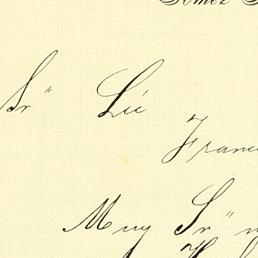 Sr" Lic
Franc
Muy Sr" m